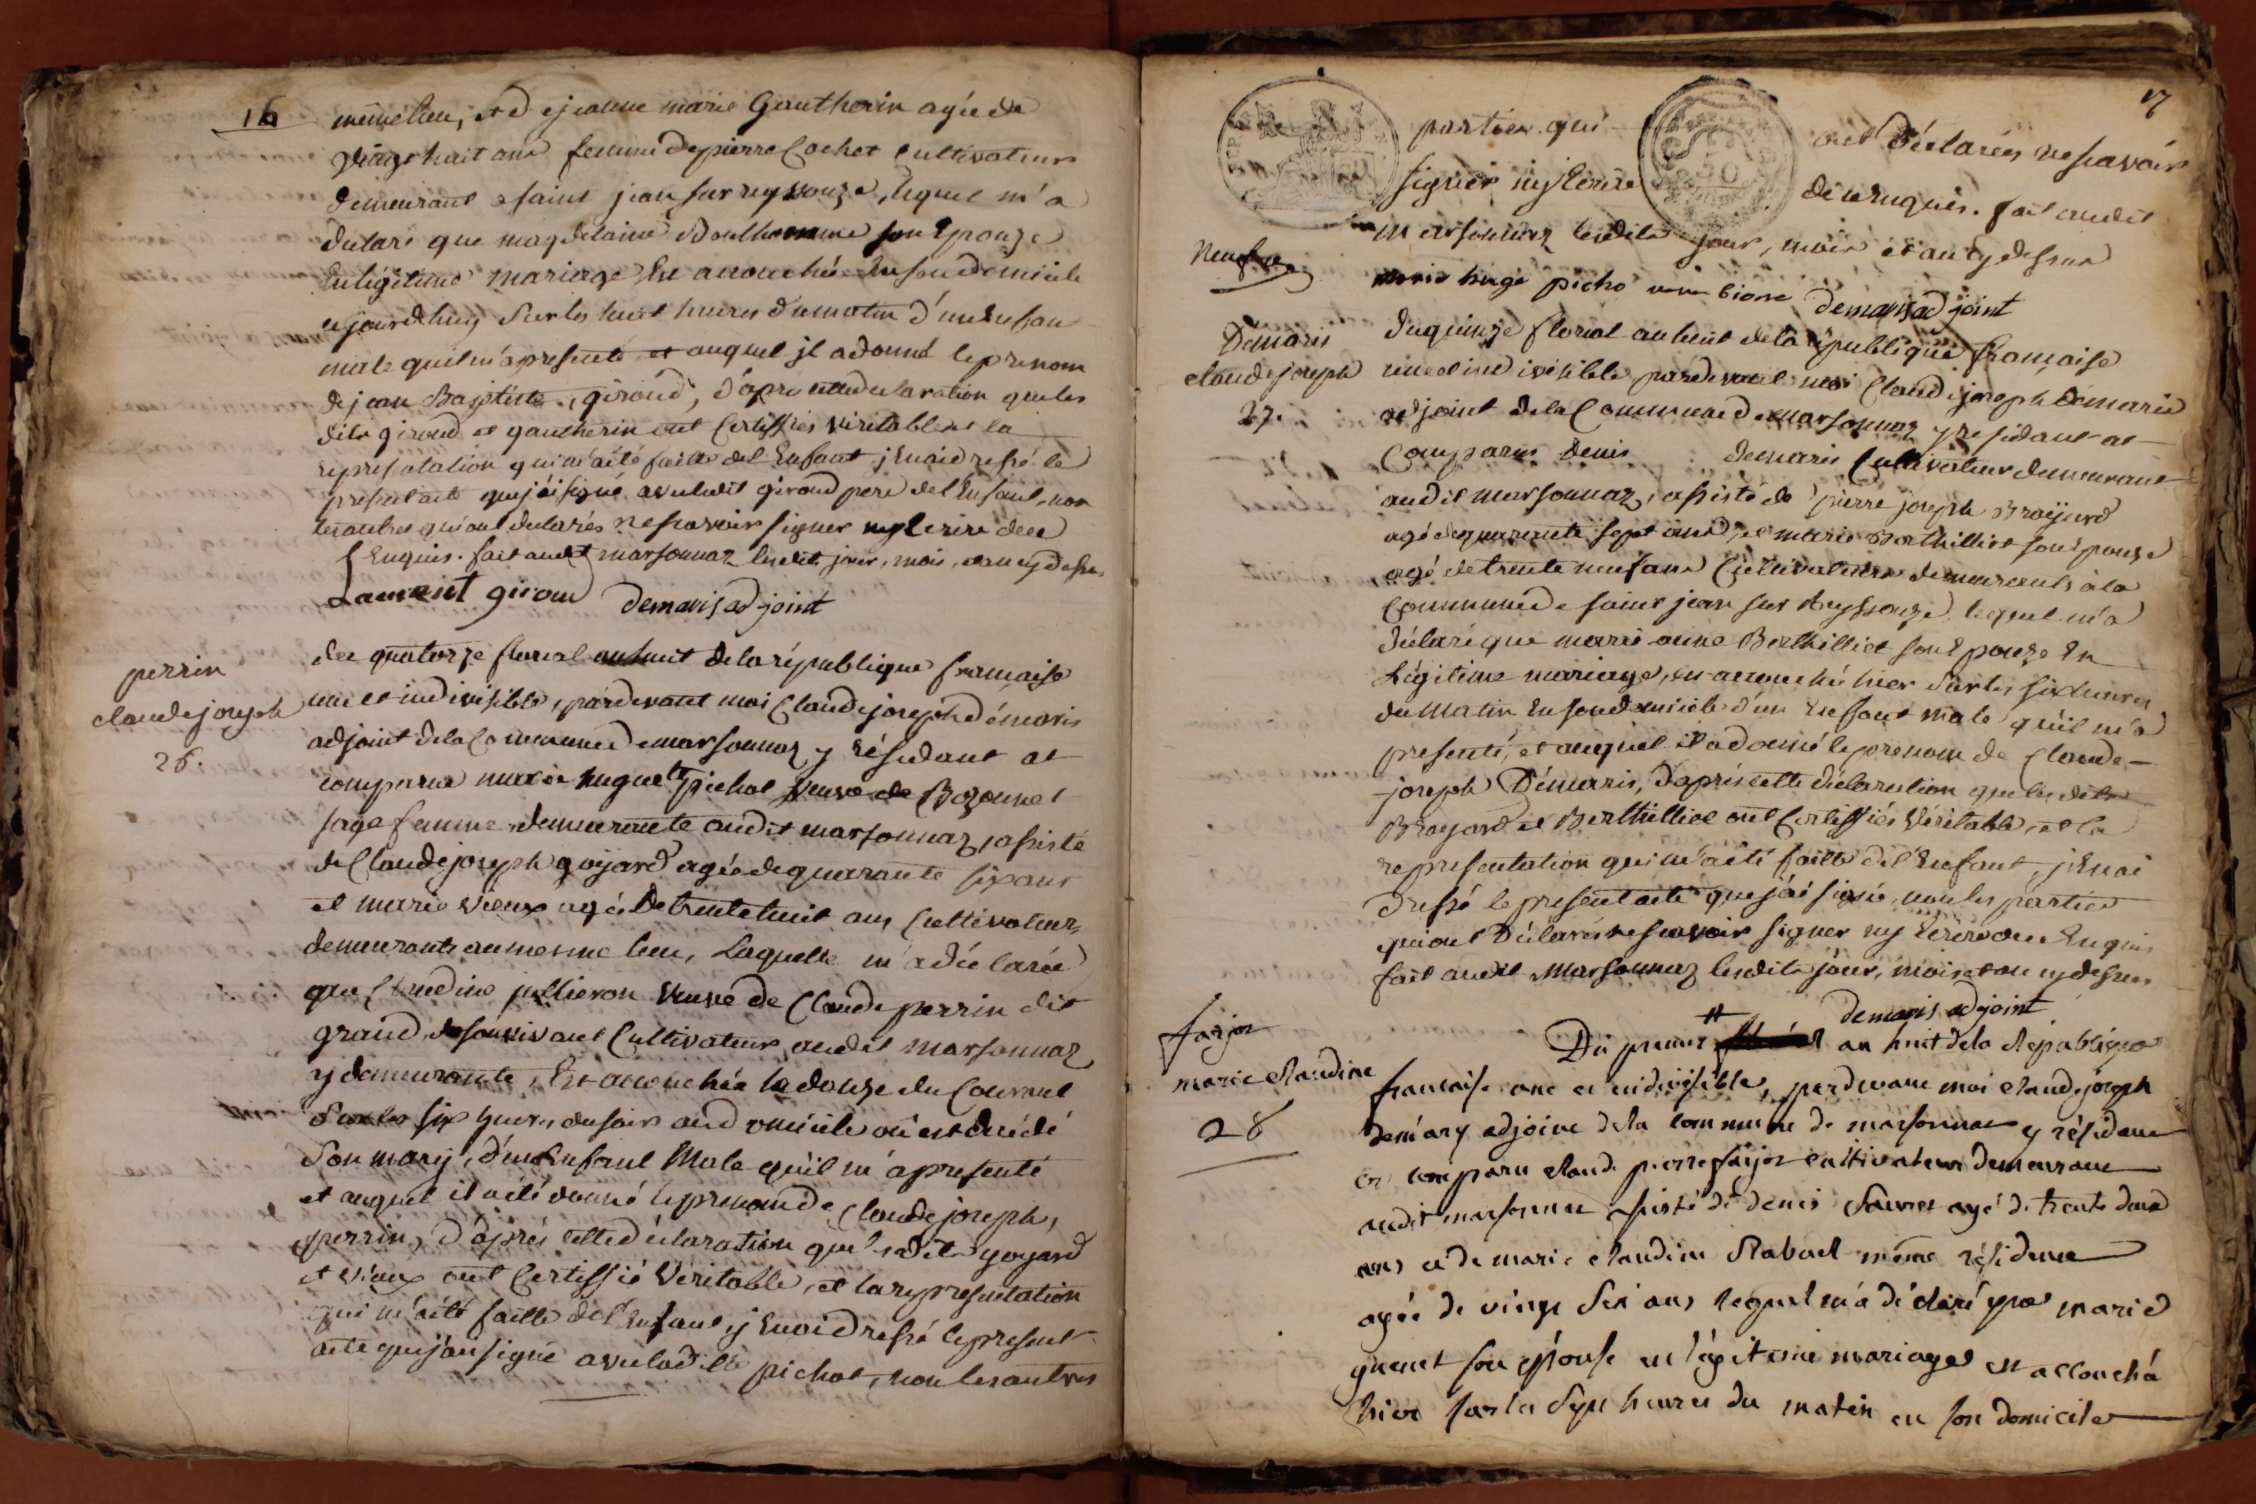 16
même lieu, et de jeanne marie Gautherin agée de
vingt huit ans femme de pierre Cochet Cultivateurs
demeurant a saint jean sur reyssouze, lequel m'a
declaré que magdelaine Bonthomme son Epouze
En légitime mariage Est accouchée En son domicile
cejourdhuy Sur les huit heures du matin d'un Enfan
male quil m'a presenté et auquel jl a donné le prenom
de jean Baptiste, giroud, d'apré cette declaration que les
dits giroud et gautherin ont Certiffiés véritable et la
represatation qui m'a été faitte del Enfant j'En ai dressé le
present acte que j'ai signé avec ledit giroud pere del Enfant, non
les autres qui ont declarés ne scavoir signer ny Ecrire de ce
Enquis. fait audit marsonnaz lesdits jour, mois, et an cy dessus
Laurent giroud demaris adjoint
perrin
claude joseph
26.
du quatorze floreal an huit de la république française
une et indivisible, pardevant moi Claude joseph démaris
adjoint de la Commune de marsonnaz y résidant at
comparue marie huguette pichot veuve de Bozonnet
sage femme demeurante audit marsonnaz, assisté
de Claude joseph goyard agée de quarante six ans
et marie Vieux agée de trente huit ans Cultivateurs
demeurants au mesme lieu, Laquelle m'a déclarée
que Claudine jullieron veuve de Claude perrin dit
grand, de son vivant Cultivateur audit marsonnaz
y demeurante, Est accouchée le douze du Courant
Sur les six heures du soir au domicile où est décédé
Son mary, d'un Enfant Male qu'il m'a presenté
et auquel il a été donné le prenom de Claude joseph,
perrin, d'après cette déclaration que lesdits goyard
et vieux ont Certiffié Véritable, et la representation
qui m'a été faitte del Enfant j'En ai dressé le present
acte que j'ai signé avec ladite pichot, non les autres
17
parties qui ont déclarées ne scavoir
signer ny Ecrire de ce Enquis. fait audit
Marsonnaz lesdits jour, mois et an cy dessus
marie huge picho
demaris adjoint
Démaris
claude joseph
27.
du quinze floreal an huit de la république française
une et indivisible pardevant moi Claude joseph démaris
adjoint de la Commune de marsonnaz y residant at
Comparu Denis demaris Cultivateur demeurant
audit marsonnaz, assisté de pierre joseph Broyard
agé de quarante sept ans, et marie Berthilliet son épouze
agé de trente neuf ans Cultivateurs demeurants à la
Commune de saint jean sur Reyssouze, lequel m'a
déclaré que marie anne Berthilliet son Epouze En
Légitime mariage, est accouché hier Sur les six heures
du Matin En son domicile d'un Enfant male qu'il m'a
presenté, et auquel il a donné le prenom de Claude-
joseph Démaris, d'après cette déclaration que lesdits
Broyard et Berthilliet ont Certiffiés Véritable, et la
representation qui m'a été faitte del'Enfant, j'En ai
dressé le present acte que j'ai signé, non les parties
qui ont déclarés ne scavoir signer ny Ecrire de ce Enquis
fait audit Marsonnaz lesdits jour, mois et an cy dessus
demaris adjoint
farjon
marie claudine
28
Du premier an huit de la République
francaise une et indivisible, perdevant moi claude joseph
demary adjoint de la commune de marsonnas y résidant
en comparu claude pierre farjon cultivateur demeurant
audit marsonnas assisté de denis Savoret agé de trente deux
ans et de marie claudine Rabuel même résidence
agée de vingt six ans lequel m'a déclaré que marie
guenet son épouse en légitime mariage est accouchée
hier sur les sept heures du matin en son domicile